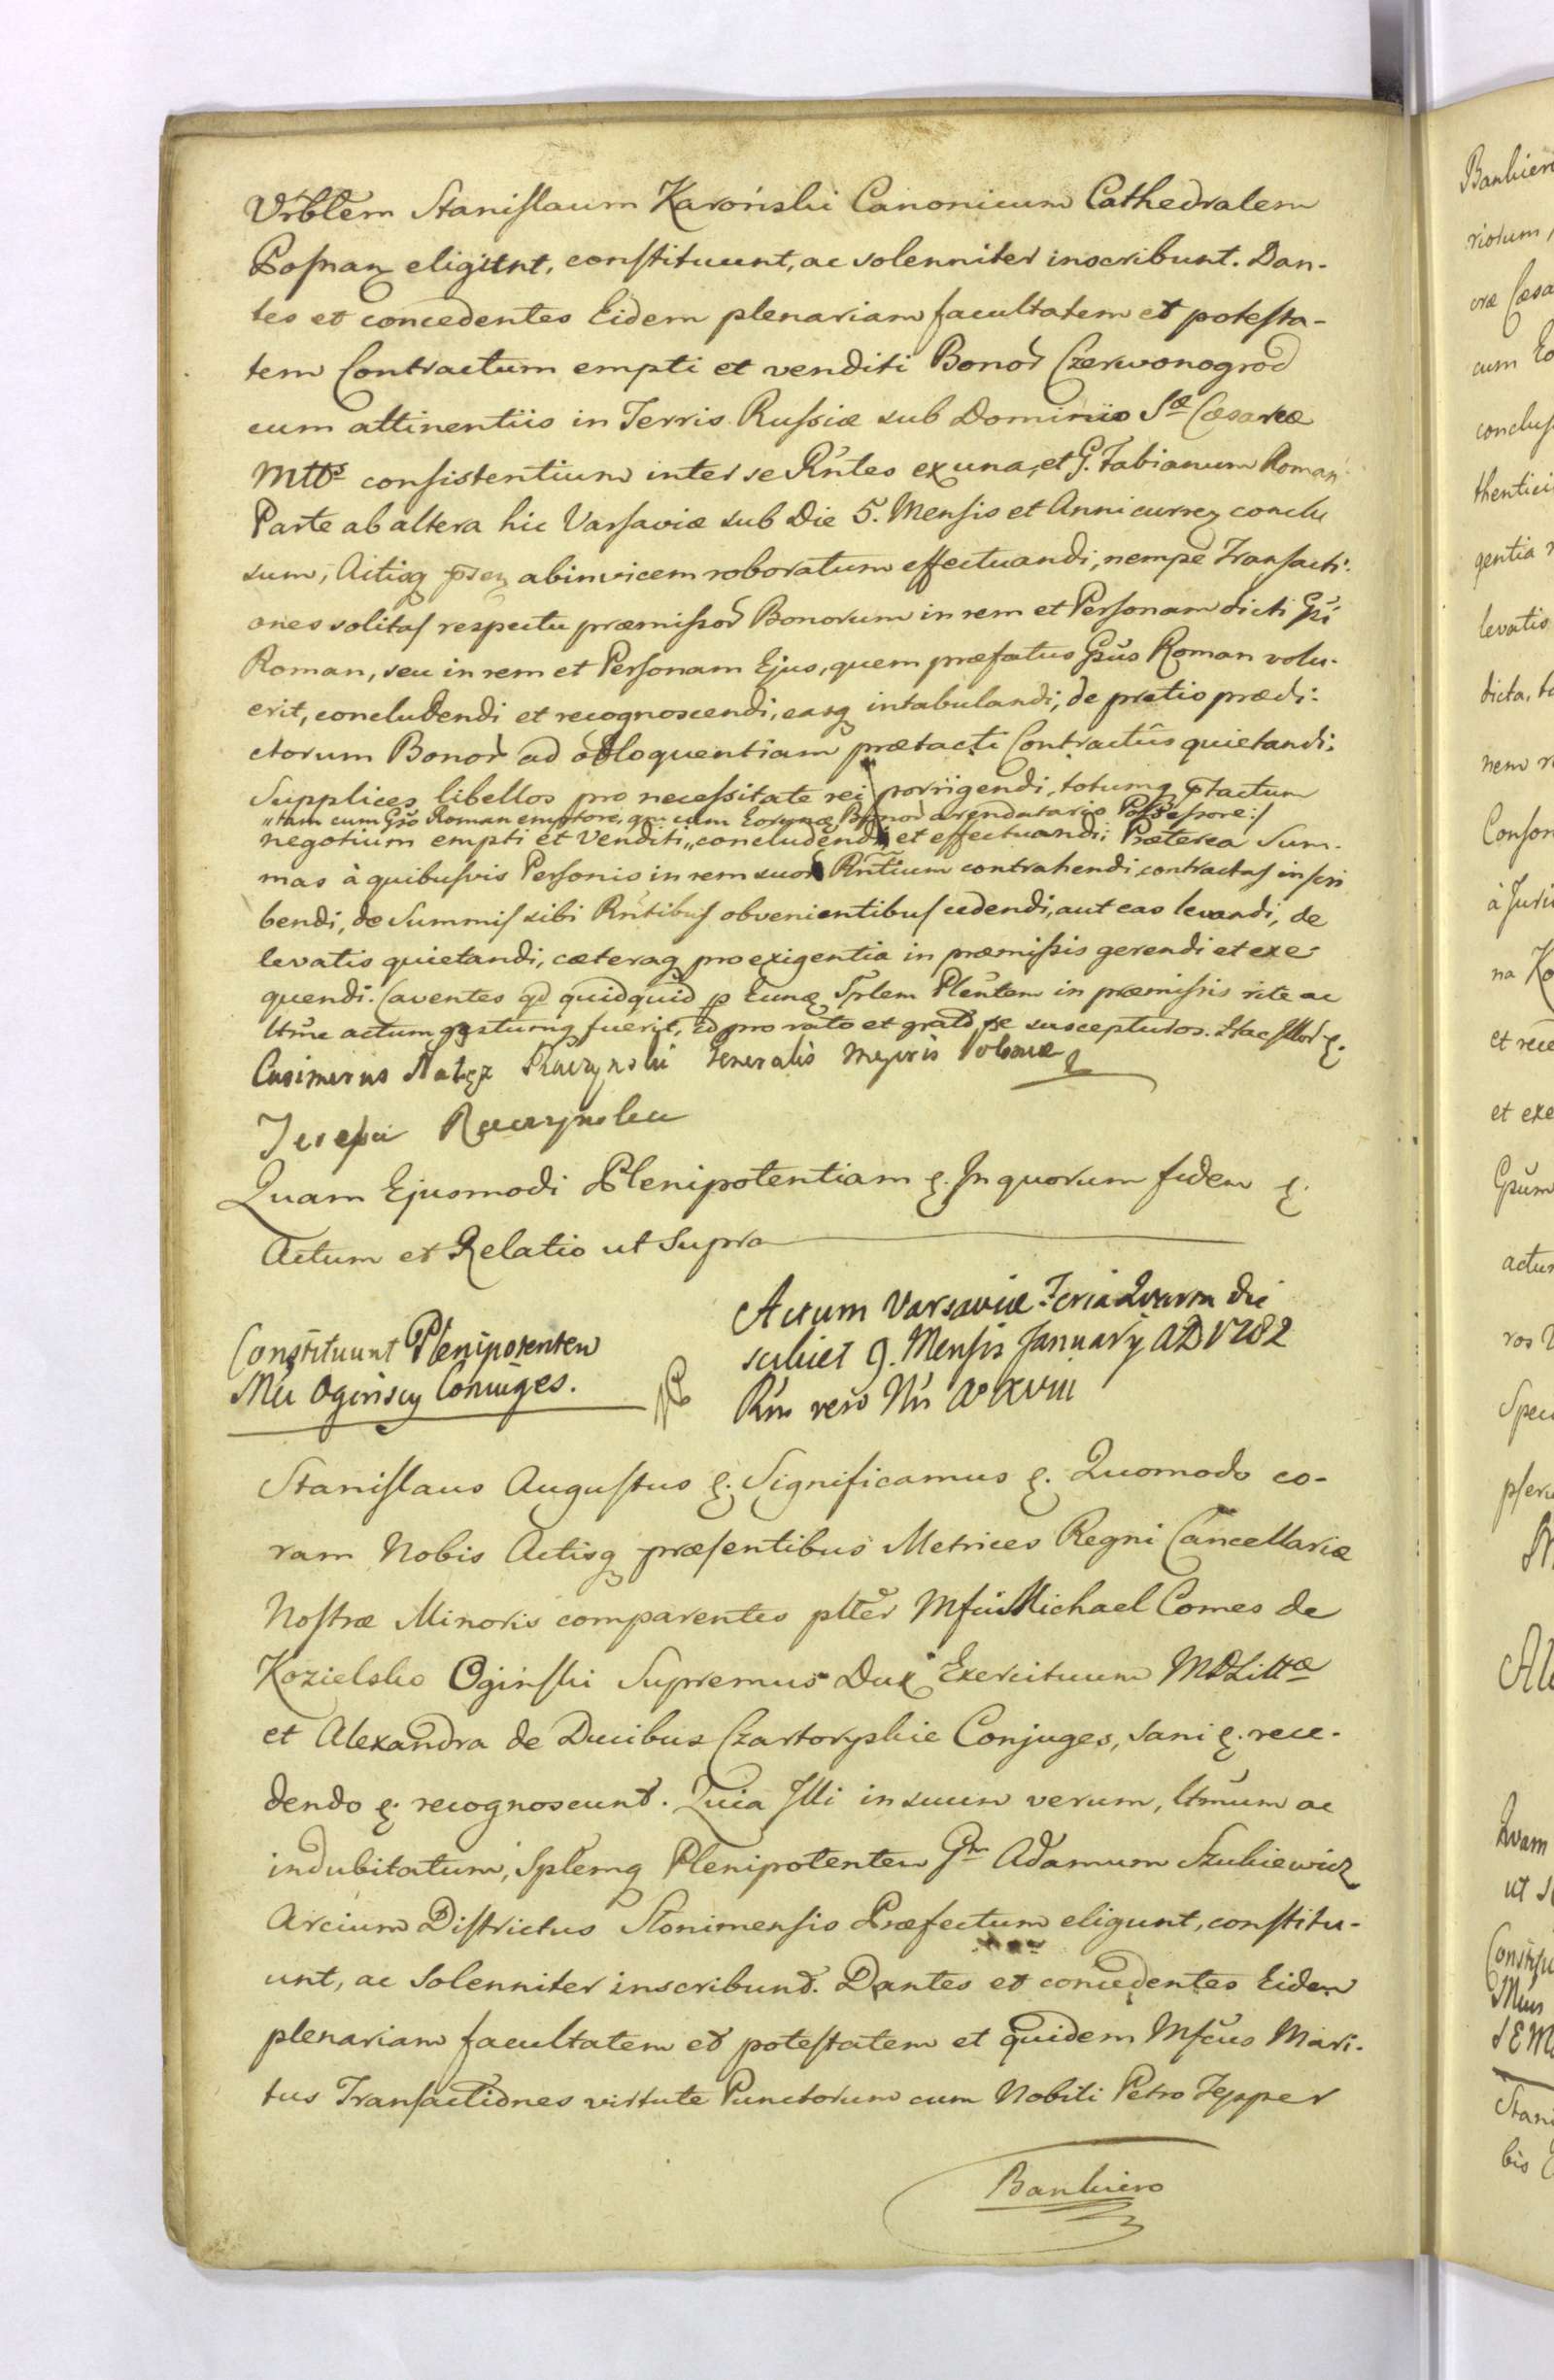 Vrblem Stanislaum Karoński Canonicum Cathedralem
Posnan eligunt, constituunt, ac solenniter inscribunt. Dan-
tes et concedentes Eidem plenariam facultatem et potesta-
tem Contractum empti et venditi Bonor Czerwonogrod
cum attinentiis in Terris Russiæ sub Dominio Sæ Cæsareæ
Mttis consistentium inter se Rntes ex una, et G. Fabianum Roman
Parte ab altera hic Varsaviæ sub Die 5. Mensis et Anni curren conclu
sum, Actisq psen abinvicem roboratum effectuandi, nempe Transacti-
ones solitas respectu præmissor Bonorum in rem et Personam dicti Gsi
Roman, seu in rem et Personam Ejus, quem præfatus Gsus Roman volu-
erit, concludendi et recognoscendi, easq intabulandi, de pretio prædi-
ctorum Bonor ad obloquentiam prætacti Contractûs quietandi,
Supplices libellos pro necessitate rei porrigendi, totumq ptactum
„tam cum Gso Roman emptore, qm cum Eorumq Bonor arendatario Possessore:/
negotium empti et Venditi „concludendi et effectuandi; Præterea Sum-
mas à quibusvis Personis in rem suor Rntium contrahendi, contractas inscri
bendi, de Summis sibi Rntibus obvenientibus cedendi, aut eas levandi, de
levatis quietandi, cæteraq pro exigentia in præmissis gerendi et exe-
quendi. Caventes qd quidquid p Eunq Splem Plentem in præmissis rite ac
ltime actum, gestumq fuerit, id pro rato et grato se suscepturos. Hac Illor &.
Casimirus Nałęz Raczynski Generalis Majoris Poloniæ
Josepa Raczynska
Quam Ejusmodi Plenipotentiam &. In quorum fidem &.
Actum et Relatio ut Supra
Constituunt Plenipotenten
Mci Ogińscy Coniuges.
Actum Varsaviæ Feria Quarta die
scilicet 9. Mensis January AD 1782
Rni vero Nri Ao XVIII
Stanislaus Augustus &. Significamus &. Quomodo co-
ram Nobis Actisq præsentibus Metrices Regni Cancellariæ
Nostræ Minoris comparentes plter Mfcus Michael Comes de
Kozielsko Oginski Supremus Dux Exercituum MDLittæ
et Alexandra de Ducibus Czartoryskie Conjuges, sani &. rece-
dendo &. recognoscunt. Quia Illi in suum verum, ltmum ac
indubitatum, Splemq Plenipotenten Gm Adamum Szukiewicz
Arcium Districtus Slonimensis Præfectum eligunt, constitu-
unt, ac solenniter inscribunt. Dantes et concedentes Eidem
plenariam facultatem et potestatem et quidem Mfcus Mari-
tus Transactiones virtute Punctorum cum Nobili Petro Tepper
Bankiero